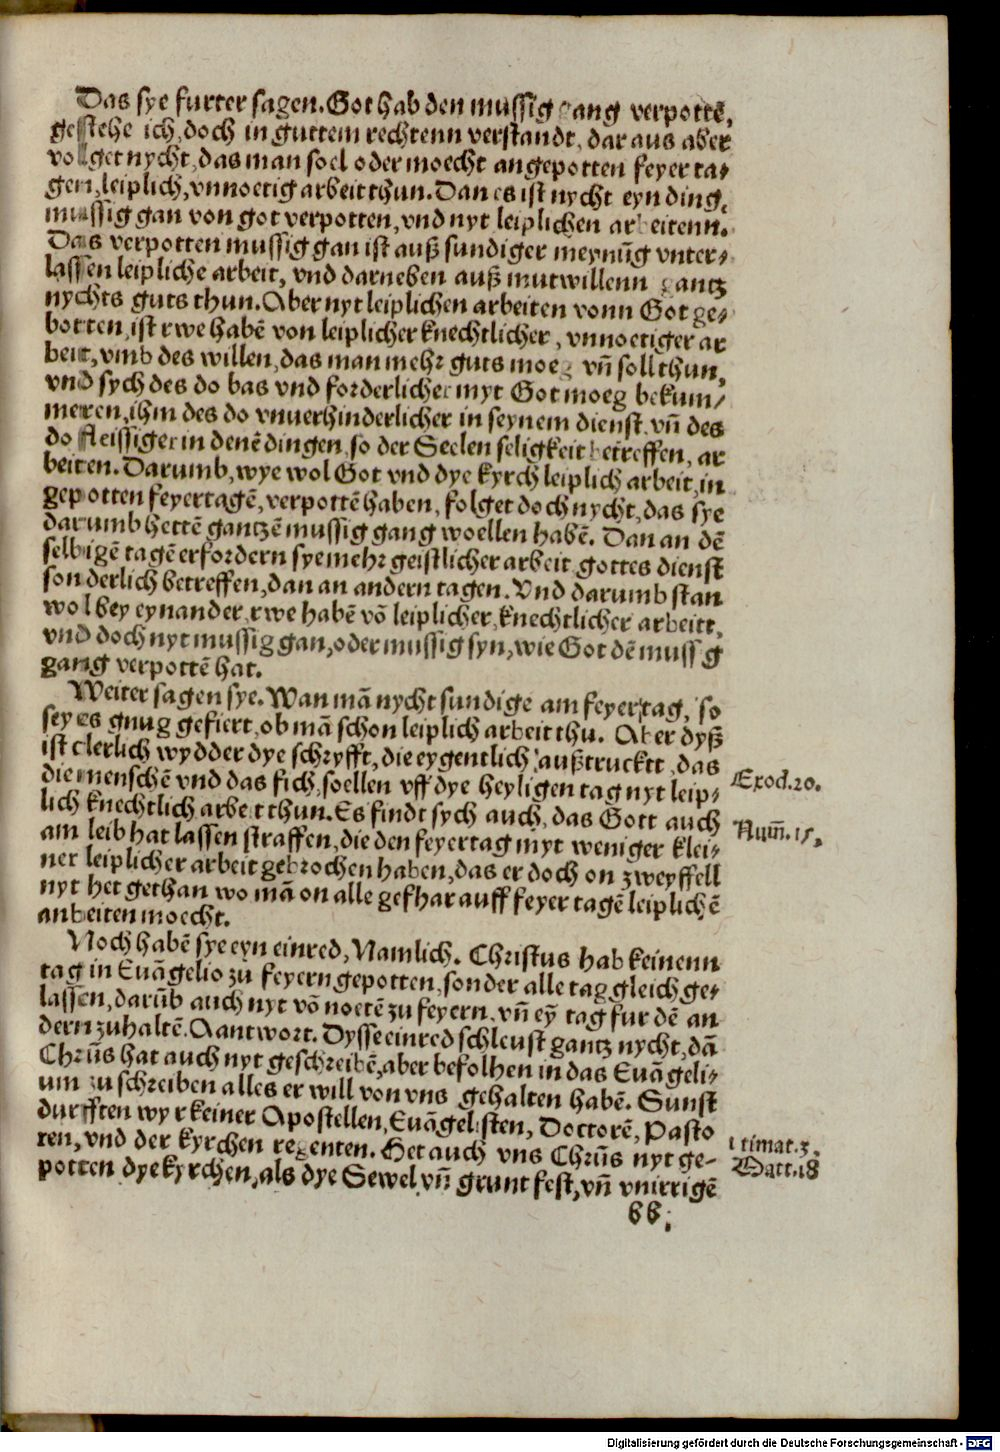 Das sye furter sagen. Got hab den mussig gang verpottē,
gestehe ich, doch in guttem rechtenn verstandt, dar aus aber
volget nycht, das man soel oder moecht angepotten feyer ta⸗
gen, leiplich, vnnoetig arbeit thun. Dan es ist nycht eyn ding,
mussig gan von got verpotten, vnd nyt leiplichen arbeitenn.
Das verpotten mussig gan ist auß sundiger meynūg vnter⸗
lassen leipliche arbeit, vnd darneben auß mutwillenn gantz
nychts guts thun. Aber nyt leiplichen arbeiten vonn Got ge⸗
botten, ist rwe habē von leiplicher knechtlicher, vnnoetiger ar
beit, vmb des willen, das man mehr guts moeg vn̄ soll thun,
vnd sych des do bas vnd forderlicher myt Got moeg bekum⸗
meren, ihm des do vnuerhinderlicher in seynem dienst, vn̄ des
do fleissiger in denē dingen, so der Seelen seligkeit betreffen, ar
beiten. Darumb, wye wol Got vnd dye kyrch leiplich arbeit, in
gepotten feyertagē, verpottē haben, folget doch nycht, das sye
darumb hettē gantzē mussig gang woellen habē. Dan an dē
selbigē tagē erfordern sye mehr geistlicher arbeit gottes dienst
sonderlich betreffen, dan an andern tagen. Vnd darumb stan
wol bey eynander, rwe habē vō leiplicher, knechtlicher arbeitt,
vnd doch nyt mussig gan, oder mussig syn, wie Got dē mussig
gang verpottē hat.
Weiter sagen sye. Wan mā nycht sundige am feyertag, so
sey es gnug gefiert, ob mā schon leiplich arbeit thu. Aber dyß
ist clerlich wydder dye schryfft, die eygentlich außtruckt, das
die menschē vnd das fich, soellen vff dye heyligen tag nyt leip⸗
lich knechtlich arbeit thun. Es findt sych auch, das Gott auch
am leib hat lassen straffen, die den feyertag myt weniger klei⸗
ner leiplicher arbeit gebrochen haben, das er doch on zweyffell
nyt het gethan wo mā on alle gefhar auff feyer tagē leiplichē
anbeiten moecht.
Exod. 20.
Num̄. 15.
Noch habē sye eyn einred, Namlich. Christus hab keinenn
tag in Euāgelio zu feyern gepotten, sonder alle tag gleich ge⸗
lassen, darūb auch nyt vō noetē zu feyern, vn̄ ey̅ tag fur dē an
dern zuhaltē. Aantwort. Dysse einred schleust gantz nycht, dā
Chrūs hat auch nyt geschreibē, aber befolhen in das Euāgeli⸗
um zu schreiben alles er will von vns gehalten habē. Sunst
durfften wyr keiner Apostellen, Euāgelisten, Doctorē, Pasto
ren, vnd der kyrchen regenten. Het auch vns Chrūs nyt ge⸗
potten dye kyrchen, als dye Sewel vn̄ grunt fest, vn̄ vnirrigē
1 timat. 3.
Matt. 18
bb.
Digitalisierung gefördert durch die Deutsche Forschungsgemeinschaft - DFG